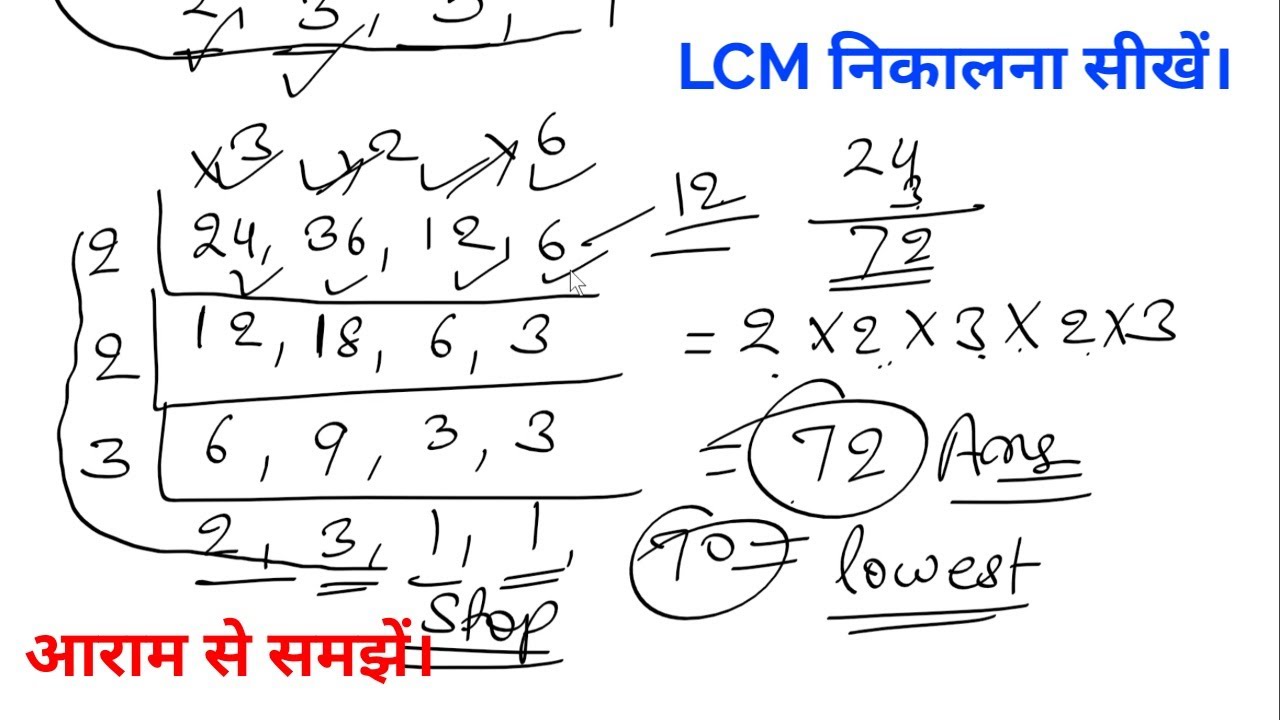 2, 3, 3, 1
LCM निकालना सीखें।
×3 ×2 ×6
2 24, 36, 12, 6 12
24
3
72
2 12, 18, 6, 3
= 2 × 2 × 3 × 2 × 3
3 6, 9, 3, 3
= 72 Ans
2, 3, 1, 1,
70 = lowest
Stop
आराम से समझें।